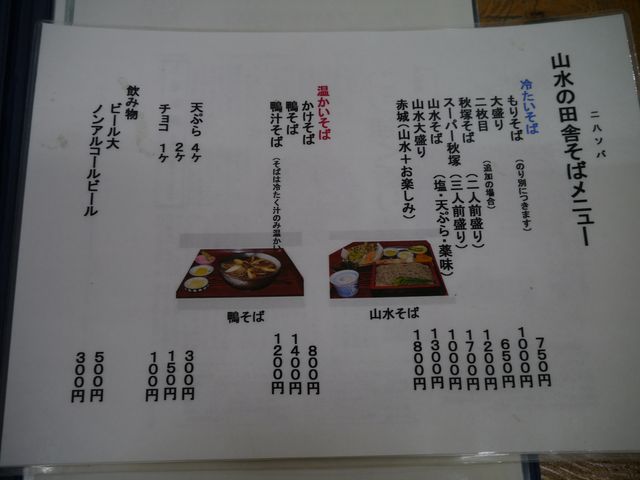 山水の田舎そばメニュー
二八ソバ
冷たいそば
もりそば (のり別につきます) 750円
大盛り 1000円
二枚目 (追加の場合) 650円
秋塚そば (二人前盛り) 1200円
スーパー秋塚 (三人前盛り) 1700円
山水そば (塩・天ぷら・薬味) 1000円
山水大盛り 1300円
赤城 (山水＋お楽しみ) 1800円
山水そば
温かいそば
かけそば 800円
鴨そば 1400円
鴨汁そば (そばは冷たく汁のみ温かい 1200円
鴨そば
天ぷら 4ヶ 300円
2ヶ 150円
チョコ 1ヶ 100円
飲み物
ビール大 500円
ノンアルコールビール 300円